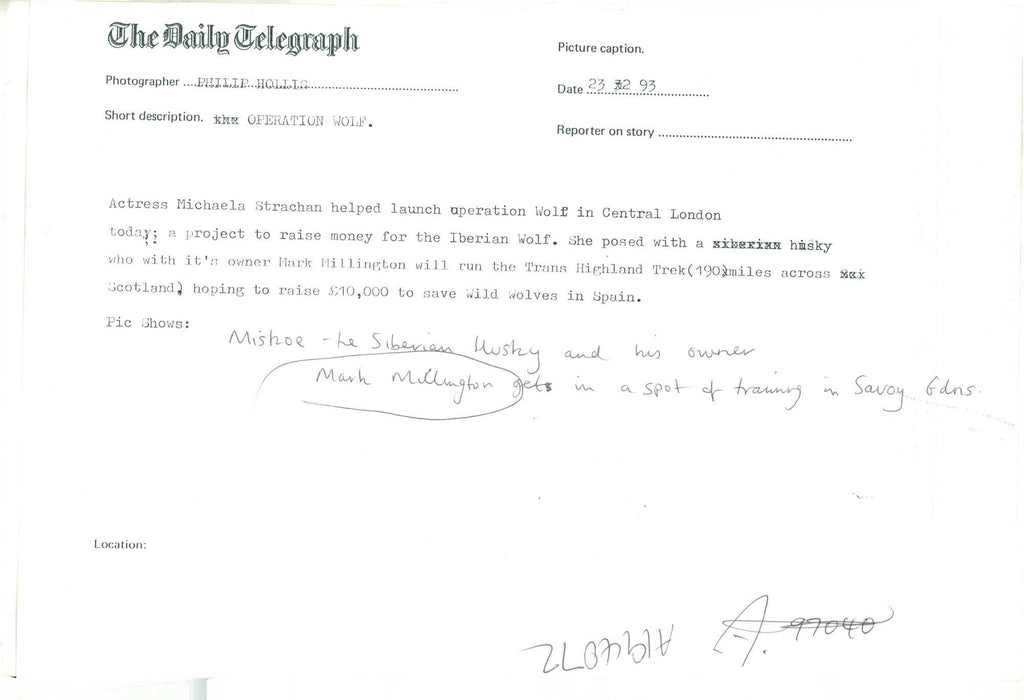 The Daily Telegraph
Picture caption.
Photographer ....PHILIP HOLLIS
Date 23 2 93
Short description. xxx OPERATION WOLF.
Reporter on story
Actress Michaela Strachan helped launch operation Wolf in Central London
today; a project to raise money for the Iberian Wolf. She posed with a siberian husky
who with it's owner Mark Millington will run the Trans Highland Trek(190)miles across
Scotland) hoping to raise £10,000 to save wild wolves in Spain.
Pic Shows:
Mishoe - the Siberian Husky and his owner
Mark Millington gets in a spot of training in Savoy Gdns.
Location:
A. 97040